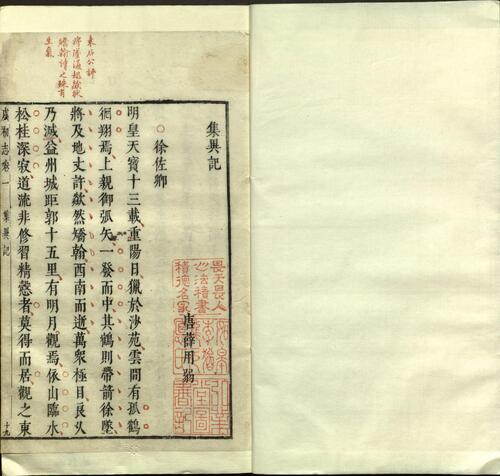 東石公評
集異記
唐薛用弱
徐佐卿
明皇天寶十三載重陽日獵於沙苑雲間有孤鶴
徊翔焉上親御弧矢一發而中其鶴則帶箭徐墜
將及地丈許歘然矯翰西南而逝萬衆極目良久
乃滅益州城距郭十五里有明月觀焉依山臨水
松桂深寂道流非修習精慤者莫得而居觀之東
虞初志卷一 集異記 十九
畏天畏人
心法積書
積德名家